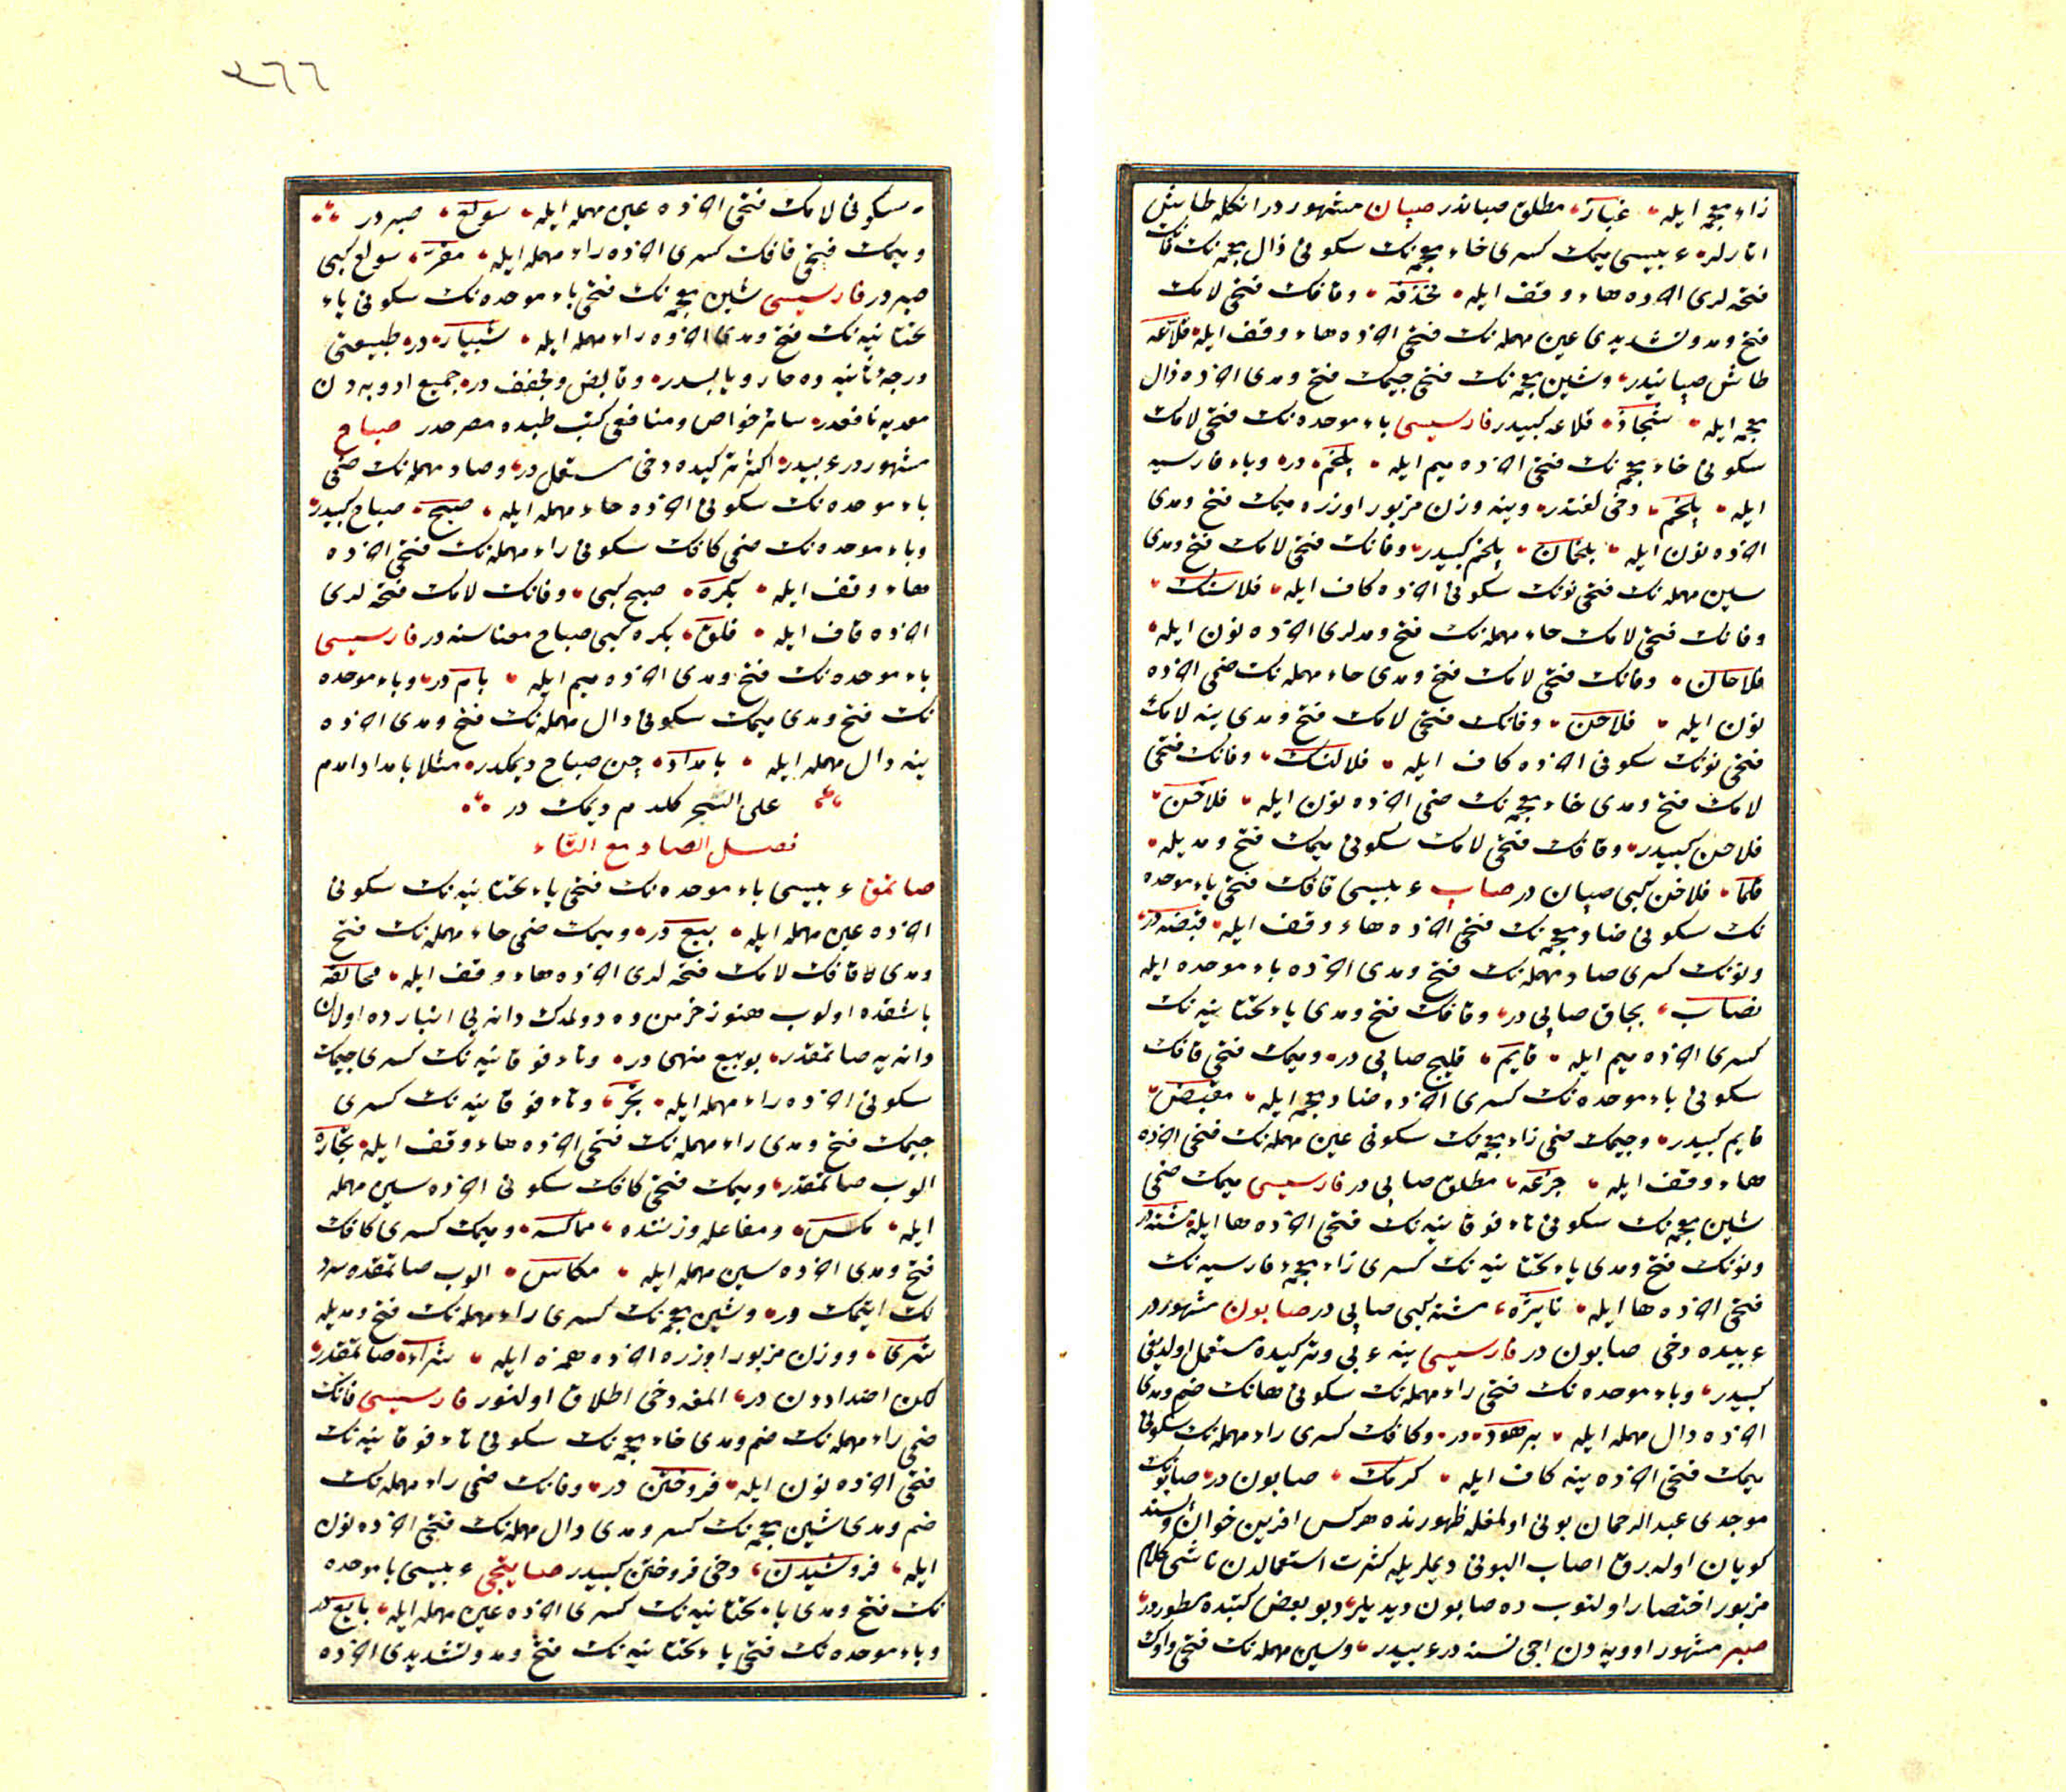 زاء معجمه ايله غباز مطلق صباندر صپان مشهوردر انكله طاش
اتارلر عربيسى ميمك كسرى خاء معجمه نك سكونى ذال معجمه نك قافك
فتحه لرى اخرده هاء وقف ايله مخذقه وقافك فتحى لامك
فتح ومد وتشديدى عين مهمله نك فتحى اخرده هاء وقف ايله قلاعه
طاش صپانيدر وشين معجمه نك فتحى جيمك فتح ومدى اخرده ذال
معجمه ايله شجاذ قلاعه كبيدر فارسيسى باء موحده نك فتحى لامك
سكونى خاء معجمه نك فتحى اخرده ميم ايله بلخم در وباء فارسيه
ايله پلخم دخى لغتدر وينه وزن مزبور اوزره ميمك فتح ومدى
اخرده نون ايله بلخمان پلخم كبيدر وفانك فتحى لامك فتح ومدى
سين مهمله نك فتحى نونك سكونى اخرده كاف ايله فلاسنك
وفانك فتحى لامك حاء مهمله نك فتح ومدلرى اخرده نون ايله
فلاحان وفانك فتحى لامك فتح ومدى حاء مهمله نك ضمى اخرده
نون ايله فلاحن وفانك فتحى لامك فتح ومدى ينه لامك
فتحى نونك سكونى اخرده كاف ايله فلالنك وفانك فتحى
لامك فتح ومدى خاء معجمه نك ضمى اخرده نون ايله فلاخن
فلاحن كبيدر وقافك فتحى لامك سكونى ميمك فتح ومديله
قلما فلاخن كبى صپان در صاپ عربيسى قافك فتحى باء موحده
نك سكونى ضاد معجمه نك فتحى اخرده هاء وقف ايله قبضه در
ونونك كسرى صاد مهمله نك فتح ومدى اخرده باء موحده ايله
نصاب بچاق صاپى در وقافك فتح ومدى ياء تحتانيه نك
كسرى اخرده ميم ايله قايم قليج صاپى در وميمك فتحى قافك
سكونى باء موحده نك كسرى اخرده ضاد معجمه ايله مقبض
قايم كبيدر وجيمك ضمى زاء معجمه نك سكونى عين مهمله نك فتحى اخرده
هاء وقف ايله جزعه مطلق صاپى در فارسيسى ميمك ضمى
شين معجمه نك سكونى تاء فوقانيه نك فتحى اخرده ها ايله مشته در
ونونك فتح ومدى ياء تحتانيه نك كسرى زاء معجمه فارسيه نك
فتحى اخرده ها ايله نايژه مشته كبى صاپى در صابون مشهوردر
عربيده دخى صابون در فارسيسى ينه عربى وتركيده مستعمل اولديغى
كبيدر وباء موحده نك فتحى راء مهمله نك سكونى هانك ضم ومدى
اخرده دال مهمله ايله برهود در وكافك كسرى راء مهمله نك سكونى
ميمك فتحى اخرده ينه كاف ايله كرمك صابون در صابونك
موجدى عبد الرحمان بونى اولمغله ظهورنده هركس افرين خوان
كويان اوله رق اصاب البونى ديملريله كثرت استعمالدن ناشى كلام
مزبور اختصار اولنوب ده صابون ديديلر وبو بعض كتبده مسطوردر
صبر مشهور ادويه دن اجى نسنه در عربيدر وسين مهمله نك فتحى واوك
٢٦٦
سكونى لامك فتحى اخرده عين مهمله ايله سولع صبر در
وميمك فتحى قافك كسرى اخرده راء مهمله ايله مقر سولع كبى
صبر در فارسيسى شين معجمه نك فتحى باء موحده نك سكونى ياء
تحتانيه نك فتح ومدى اخرده راء مهمله ايله شبيار در طبيعتى
درجهٔ ثانيه ده حار ويابسدر وقابض ومجفف در جميع ادويه دن
معديه نافعدر سائر خواص ومنافعى كتب طبده مصرحدر صباح
مشهوردر عربيدر اكثر تركيده دخى مستعمل در وصاد مهمله نك ضمى
باء موحده نك سكونى اخرده حاء مهمله ايله صبح صباح كبيدر
وباء موحده نك ضمى كافك سكونى راء مهمله نك فتحى اخرده
هاء وقف ايله بكره صبح كبى وفانك لامك فتحه لرى
اخرده قاف ايله فلق بكره كبى صباح معناسنه در فارسيسى
باء موحده نك فتح ومدى اخرده ميم ايله بام در وباء موحده
نك فتح ومدى ميمك سكونى دال مهمله نك فتح ومدى اخرده
ينه دال مهمله ايله بامداد چن صباح ديمكدر مثلا بامداد امدم
على السحر كلدم ديمك در
فصل الصاد مع التاء
صاتمق عربيسى باء موحده نك فتحى ياء تحتانيه نك سكونى
اخرده عين مهمله ايله بيع در وميمك ضمى حاء مهمله نك فتح
ومدى قافك لامك فتحه لرى اخرده هاء وقف ايله محاقله
باشقده اولوب هنوز خرمن ده دولمدك دانه يى انبار ده اولان
دانه يه صاتمقدر بو بيع منهى در وتاء فوقانيه نك كسرى جيمك
سكونى اخرده راء مهمله ايله تجر وتاء فوقانيه نك كسرى
جيمك فتح ومدى راء مهمله نك فتحى اخرده هاء وقف ايله تجاره
الوب صاتمقدر وميمك فتحى كافك سكونى اخرده سين مهمله
ايله مكس ومفاعله وزننده مماكسه وميمك كسرى كافك
فتح ومدى اخرده سين مهمله ايله مكاس الوب صاتمقده
لك ايتمك در وشين معجمه نك كسرى راء مهمله نك فتح ومديله
شرى ووزن مزبور اوزره اخرده همزه ايله شراء صاتمقدر
لكن اضداددن در المغه دخى اطلاق اولنور فارسيسى فانك
ضمى راء مهمله نك ضم ومدى خاء معجمه نك سكونى تاء فوقانيه نك
فتحى اخرده نون ايله فروختن در وفانك ضمى راء مهمله نك
ضم ومدى شين معجمه نك كسر ومدى دال مهمله نك فتحى اخرده نون
ايله فروشيدن دخى فروختن كبيدر صاتيجى عربيسى با موحده
نك فتح ومدى ياء تحتانيه نك كسرى اخرده عين مهمله ايله بايع در
وباء موحده نك فتحى ياء تحتانيه نك فتح ومد وتشديدى اخرده